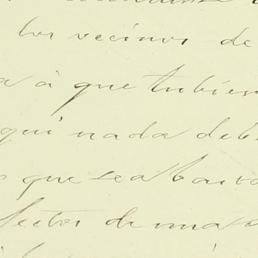 los vecinos de
a á que tubier
qui nada deb
que sea bara
fectos de una